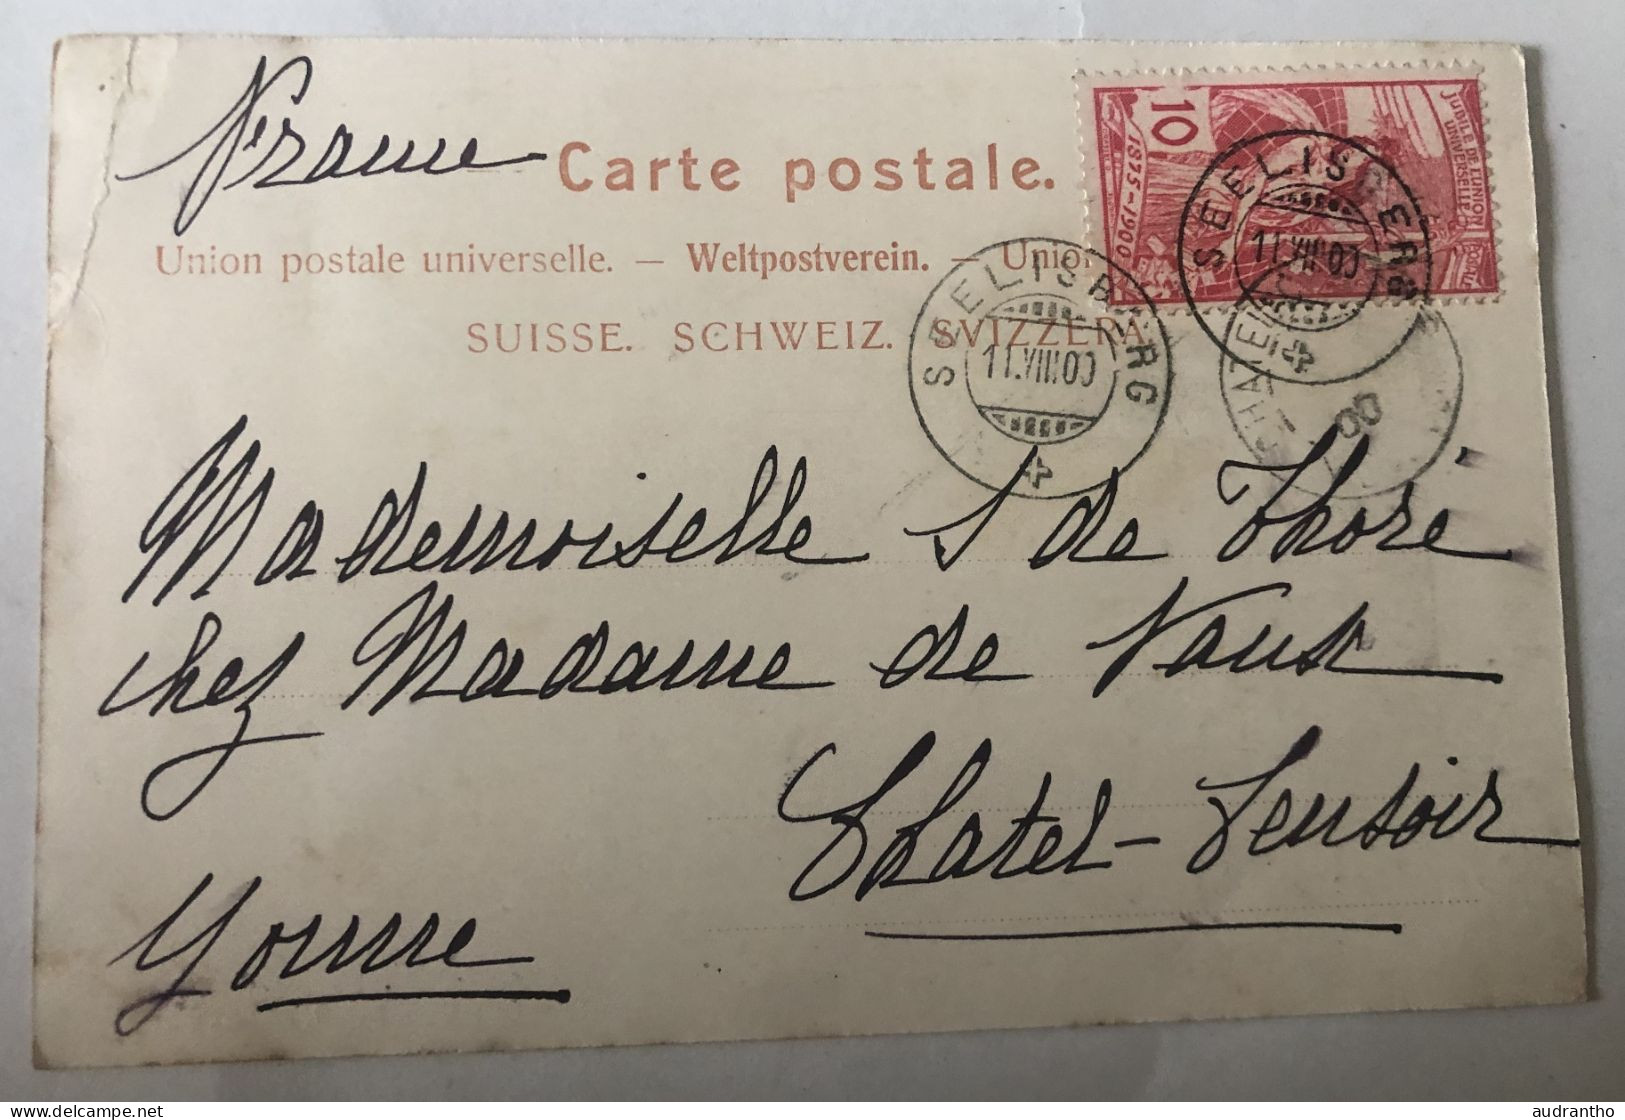 France
Carte postale.
Union postale universelle. — Weltpostverein. — Union
SUISSE. SCHWEIZ. SVIZZERA.
10
1875-1900
JUBILÉ DE L'UNION
UNIVERSELLE
SEELISBERG
11.VIII.00
SEELISBERG
11.VIII.00
00
Mademoiselle S de Thoré
chez Madame de Vaux
Chatel-Censoir
Yonne
audrantho
delcampe.net